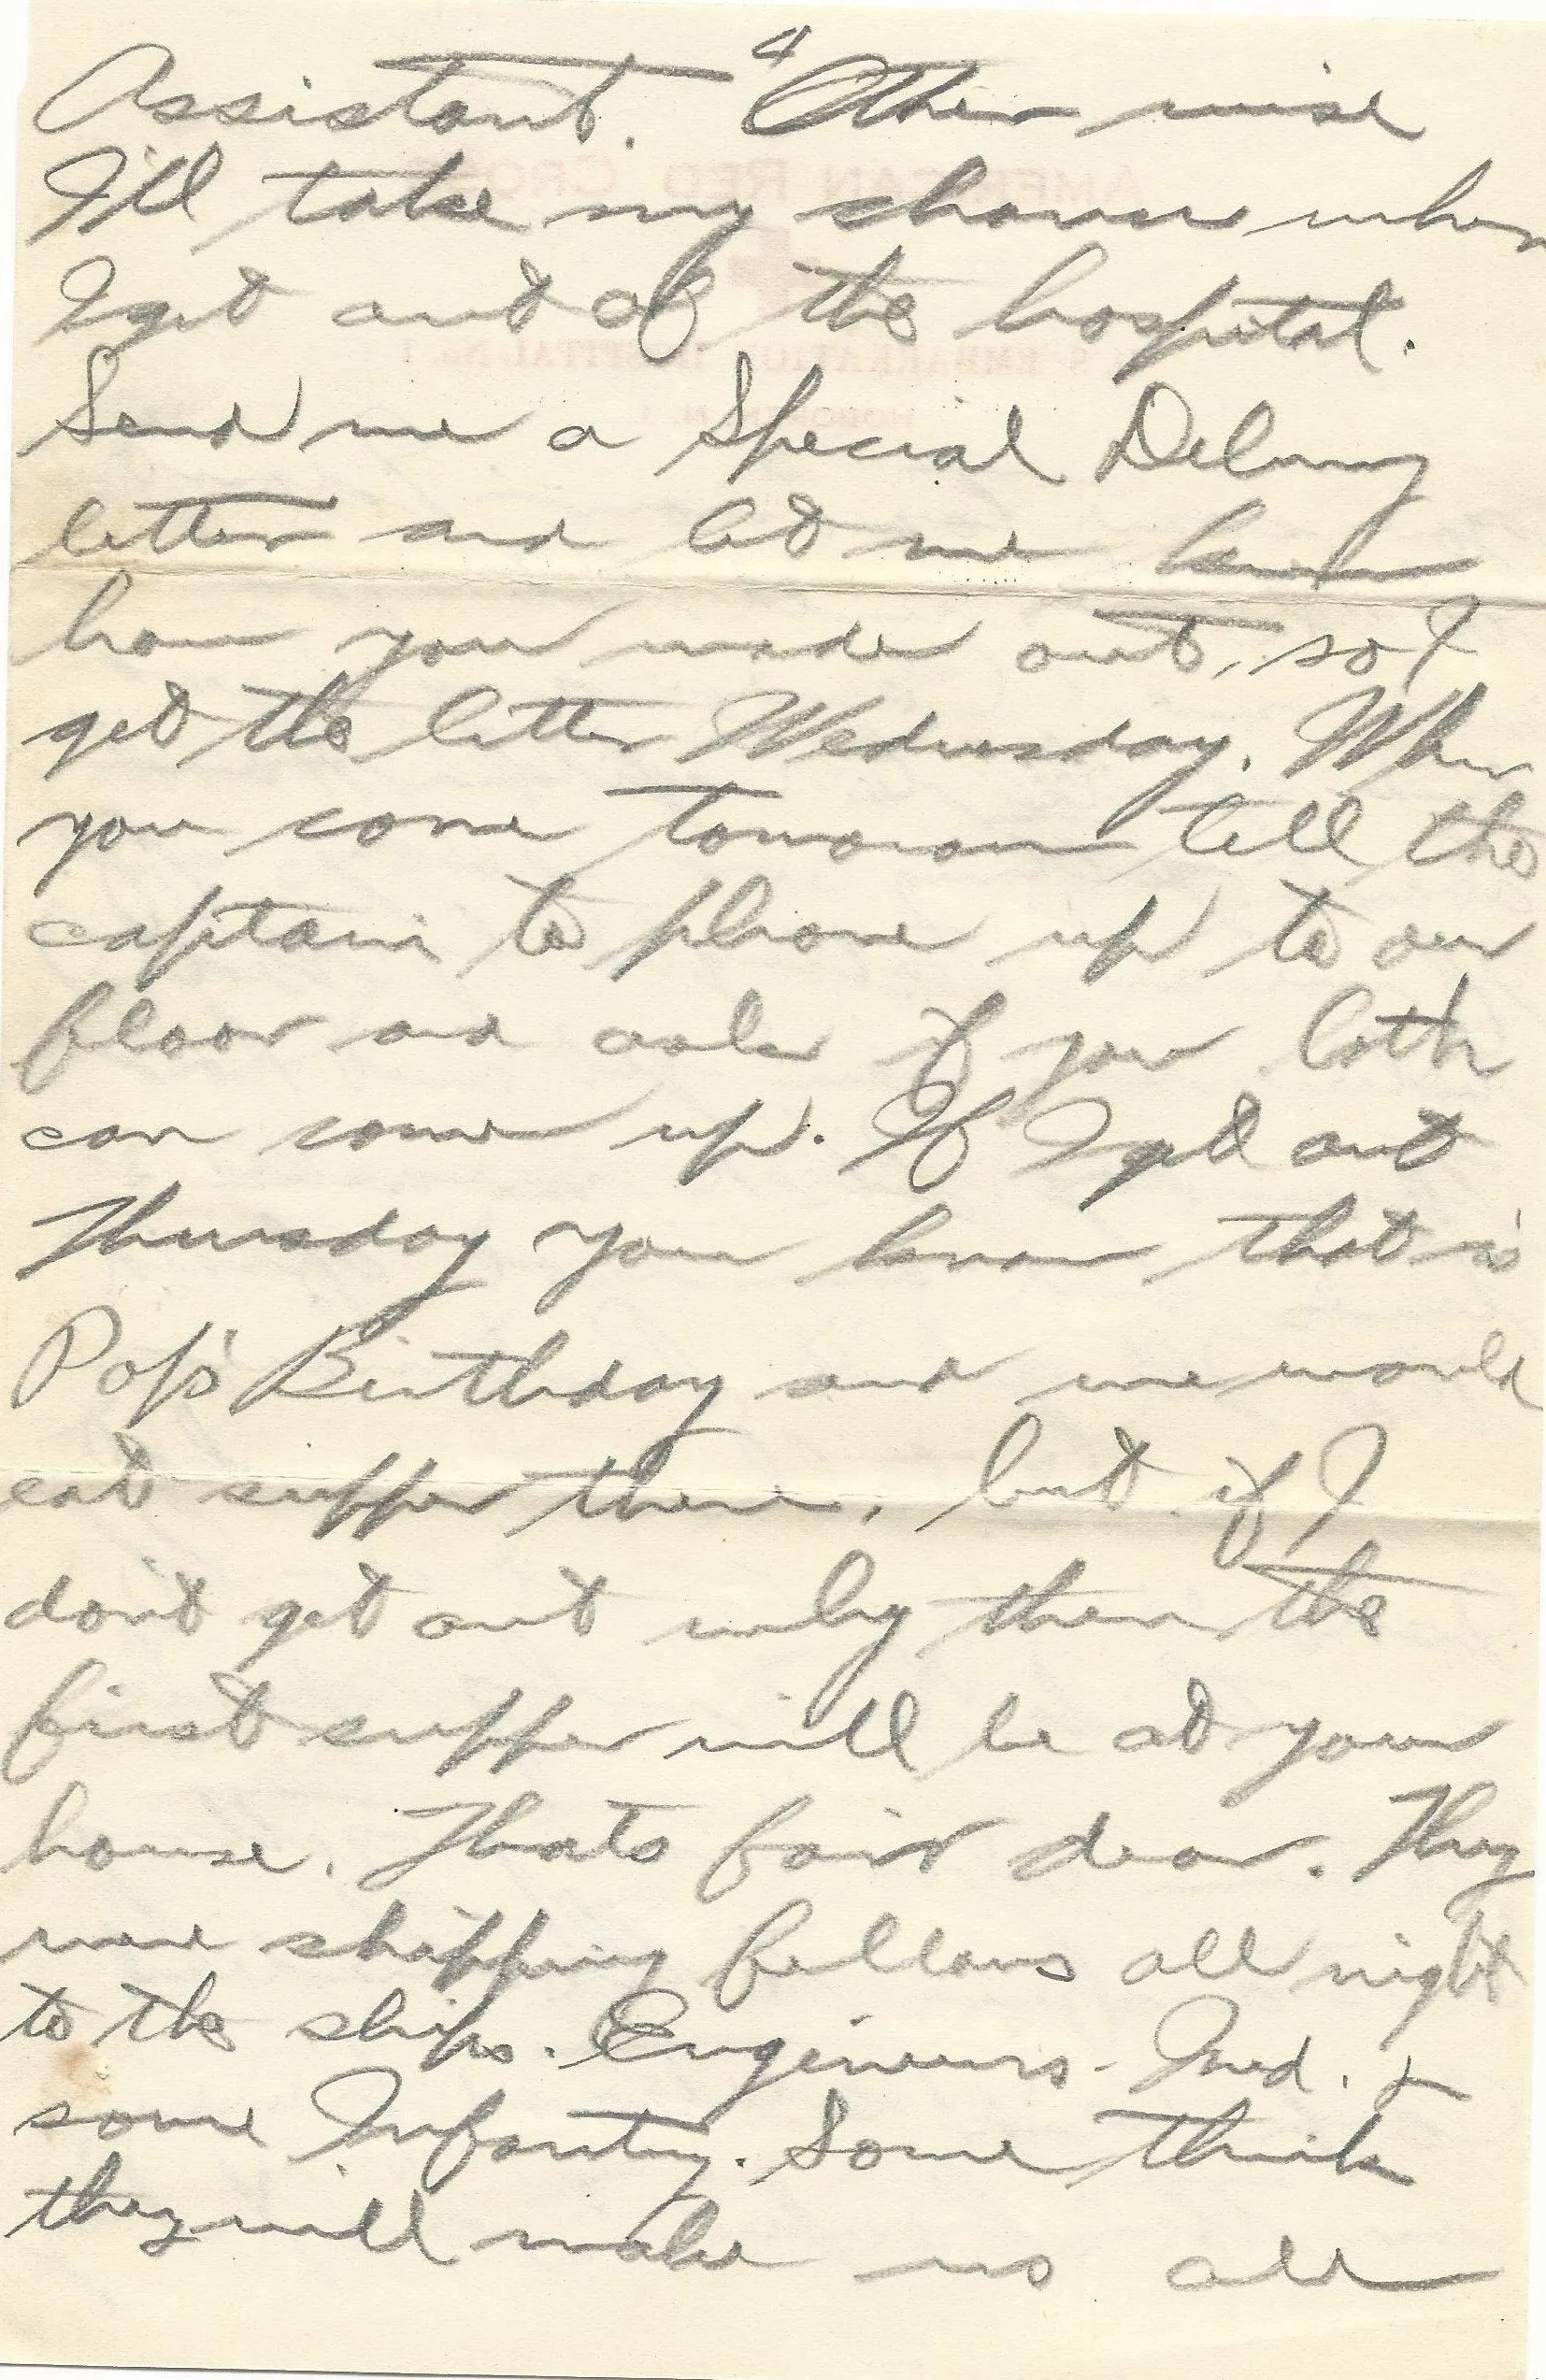 4
Assistant. Other wise
I'll take my chances when
I get out of the hospital.
Send me a Special Delivry
letter and let me know
how you made out, so I
get the letter Wednesday. When
you come tomorrow tell the
captain to phone up to our
floor and ask if you both
can come up. If I get out
Thursday you know that is
Pop's Birthday and we would
eat supper there, but if I
don't get out why then the
first supper will be at your
house. Thats fair dear. They
were shipping fellows all night
to the ships. Engineers - Med. &
some Infantry. Some think
they will make us all
AMERICAN RED CROSS
EMBARKATION HOSPITAL No. 1